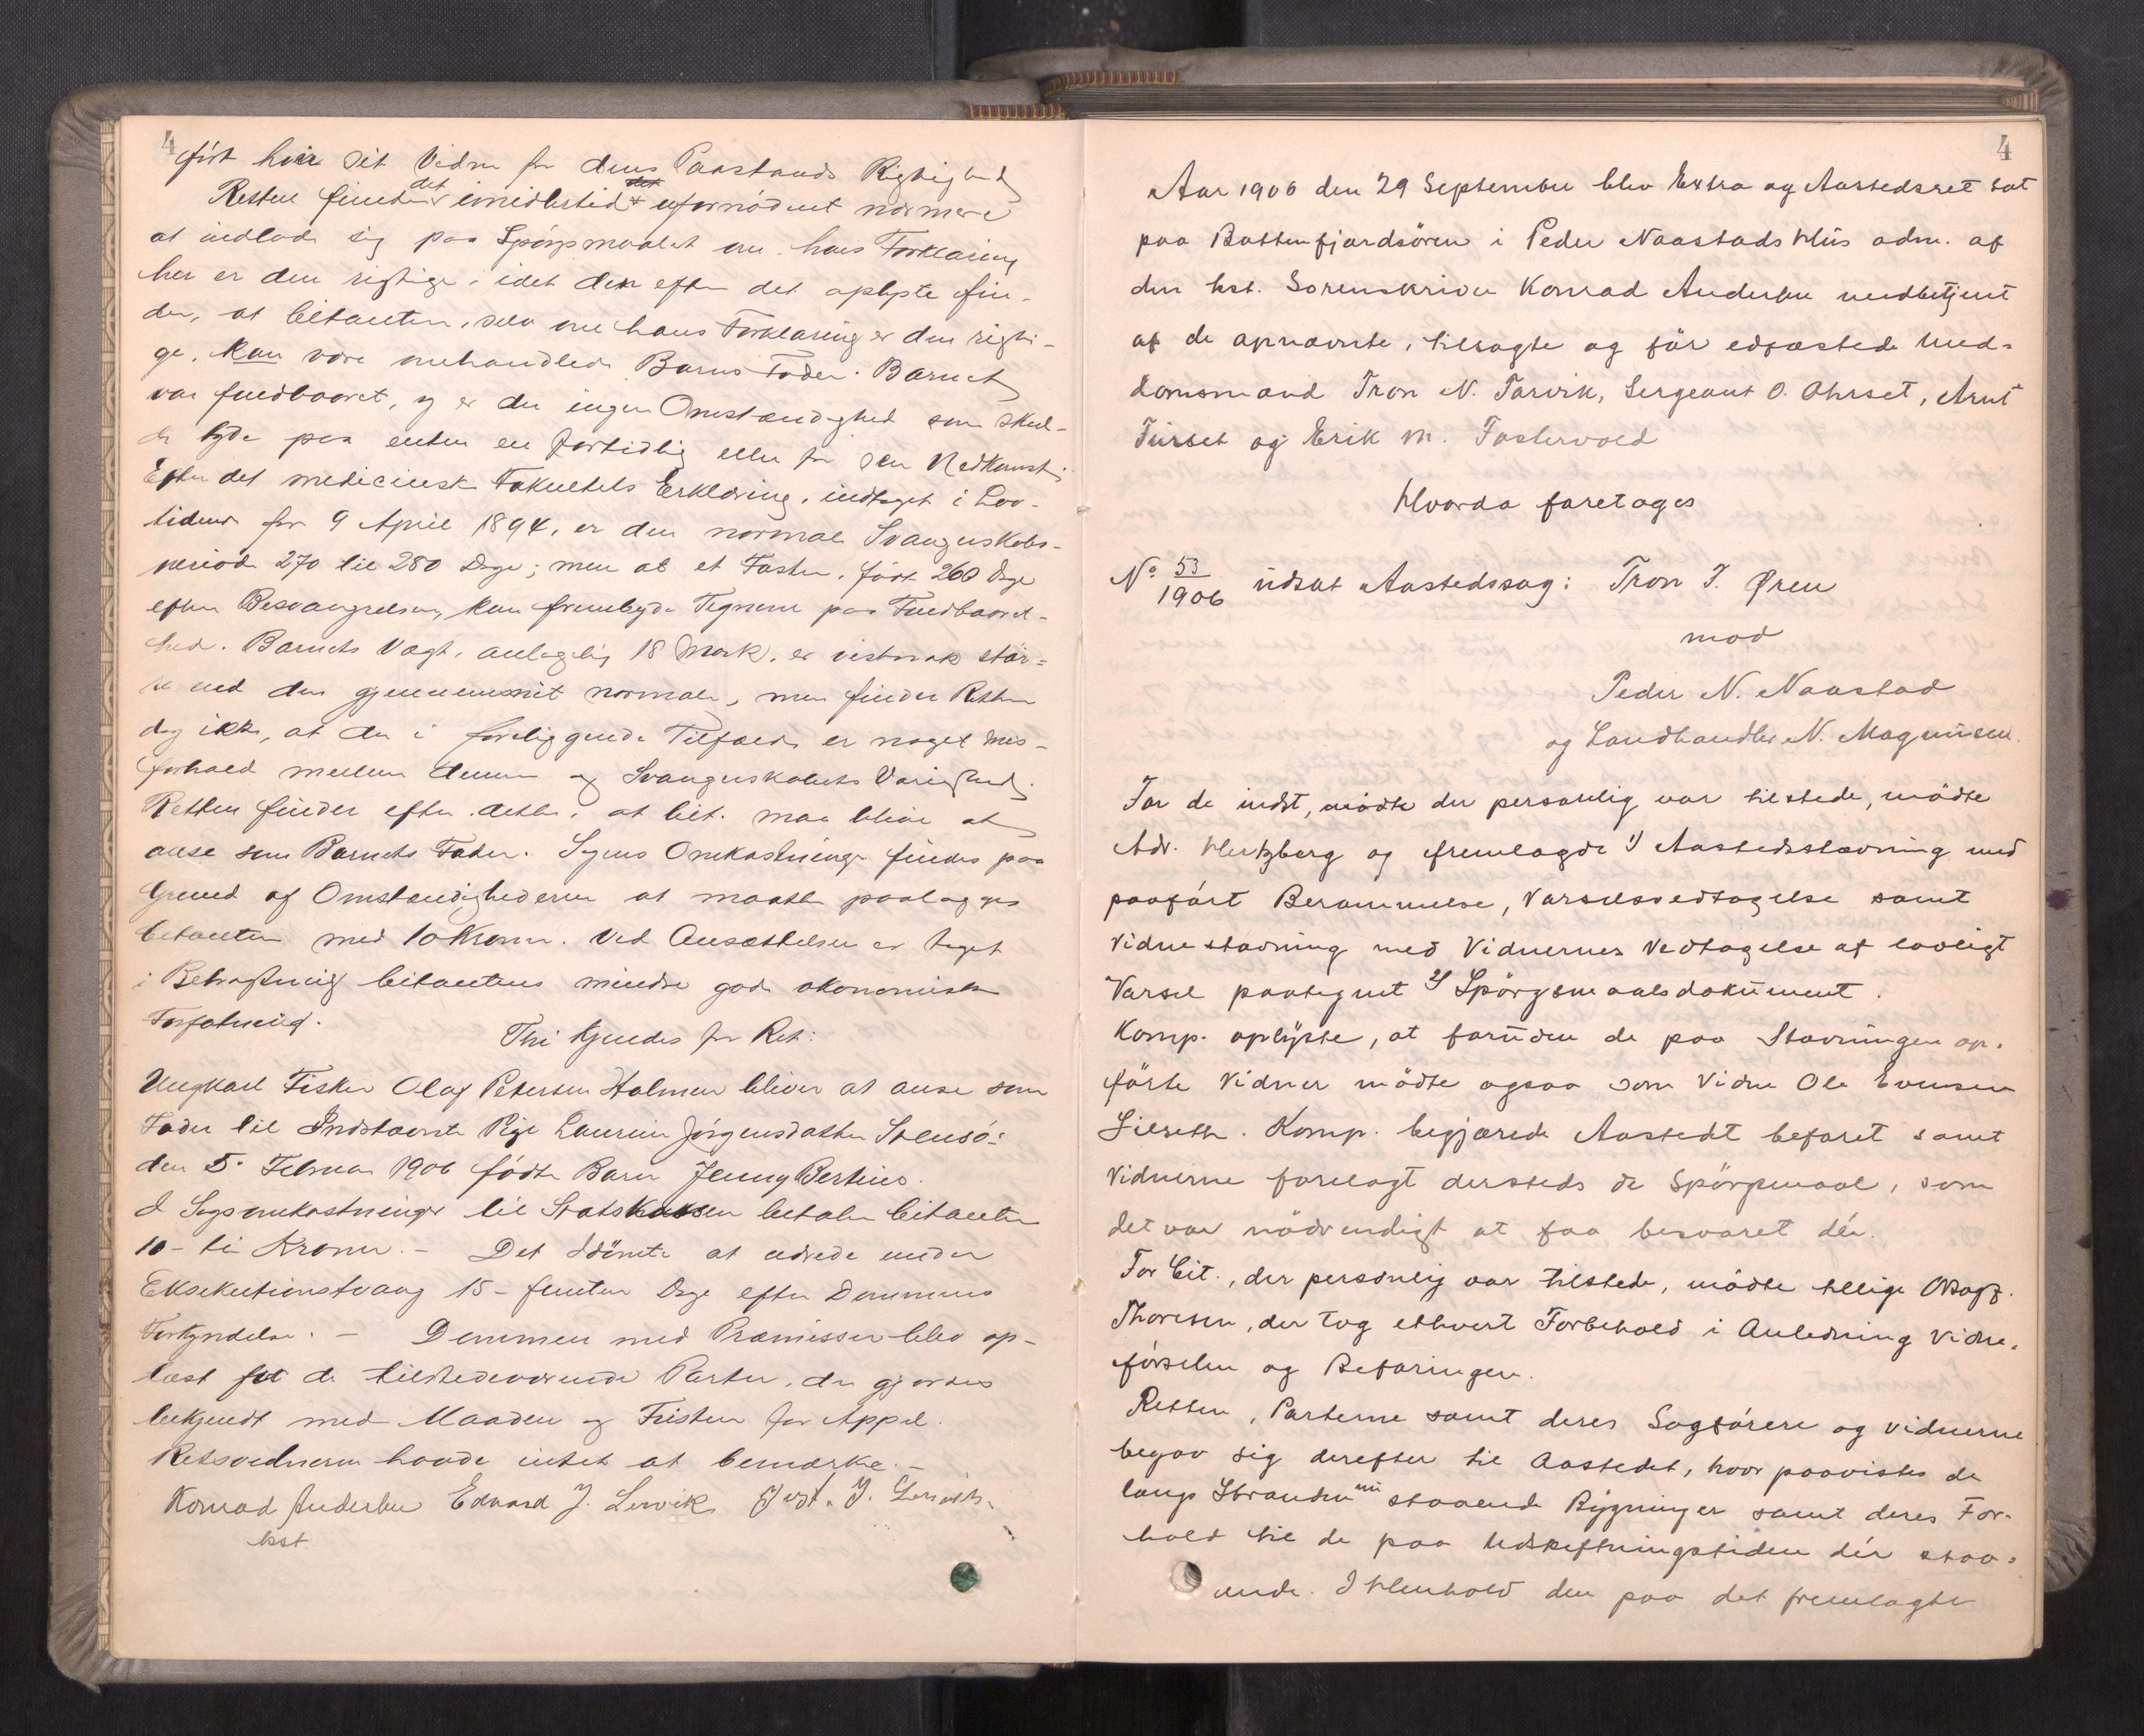 4
ført hver sit Vidne for deres Paastands Rigtighed
Retten finder det imidlertid ufornødent nærmere
at indlade sig paa Spørgsmaalet om hans Forklaring
her er den rigtige, idet den efter det oplyste fin-
der, at Citanten, selv om hans Forklaring er den rigti-
ge, kan være omhandlede Barns Fader. Barnet
var fuldbaaret, og er der ingen Omstændighed som skul-
de tyde paa enten en fortidlig eller for sen Nedkomst.
Efter det medicinske Fakultets Erklæring, indtaget i Lov-
tidende for 9 April 1894, er den normale Svangerskabs-
periode 270 til 280 Dage; men at et Foster, født 260 Dage
efter Besvangrelsen, kan frembyde Tegnene paa Fuldbaaret-
hed. Barnets Vægt, antagelig 18 Mark, er vistnok stør-
re end den gjennemsnit normale, men finder Retten
dog ikke, at der i foreliggende Tilfælde er noget Mis-
forhold mellem denne og Svangerskabets Varighed.
Retten finder efter dette, at Cit. maa blive at
anse som Barnets Fader. Sagens Omkostninger findes paa
Grund af Omstændighederne at maatte paalægges
Citanten med 10 Kroner. Ved Ansættelsen er taget
i Betragtning Citantens mindre gode økonomiske
Forfatning.
Thi kjendes for Ret:
Ungkarl Fisker Olaf Petersen Holmen bliver at anse som
Fader til Indstævnte Pige Laurine Jørgensdatter Stensø's
den 5. Februar 1906 fødte Barn Jenny Bertine.
I Sagsomkostninger til Statskassen betaler Citanten
10 - ti Kroner. - Det Idømte at udrede under
Eksekutionstvang 15 - femten Dage efter Dommens
Forkyndelse. - Dommen med Præmisser blev op-
læst for de tilstedeværende Parter, der gjordes
bekjendt med Maaden og Fristen for Appel.
Retsvidnerne havde intet at bemærke. -
Konrad Anderssen Edvard J. Lervik J. Lervik.
kst.
4
Aar 1906 den 29 September blev Extra og Aastedsret sat
paa Battenfjordsøren i Peder Naastads Hus adm. af
den kst. Sorenskriver Konrad Anderssen medbetjent
af de opnævnte, tilsagte og før edfæstede Med-
domsmænd Tron N. Tarvik, Sergeant O. Ohrset, Arnt
Furset og Erik M. Fostervold
Hvorda foretoges
No 53/1906 udsat Aastedssag: Tron I. Øren
mod
Peder N. Naastad
og Landhandler N. Magnussen.
For de indst, der personlig var tilstede, mødte
Adv. Hertzberg og fremlagde 1) Aastedsstævning med
paaført Berammelse, Varselsvedtagelse samt
Vidnestævning med Vidnernes Vedtagelse af lovligt
Varsel paategnet 2) Spørgsmaalsdokument.
Komp. oplyste, at foruden de paa Stævningen op-
førte Vidner mødte ogsaa som Vidne Ole Evensen
Silseth. Komp. begjærede Aastedet befaret samt
Vidnerne forelagt dersteds de Spørgsmaal, som
det var nødvendigt at faa besvaret dér.
For Cit., der personlig var tilstede, mødte tillige Oksagf.
Thoresen, der tog ethvert Forbehold i Anledning Vidne-
førselen og Befaringen.
Retten, Parterne samt deres Sagførere og Vidnerne
begav sig derefter til Aastedet, hvor paavistes de
langs Stranden nu staaende Bygninger samt deres For-
hold til de paa Udskiftningstiden dér staa-
ende. I Henhold den paa det fremlagte